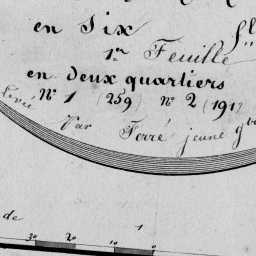 en Six
1re Feuille
en deux quartiers
Nº 1 (259) Nº 2 (191
Par Ferré jeune
de
1
30 20 10 0